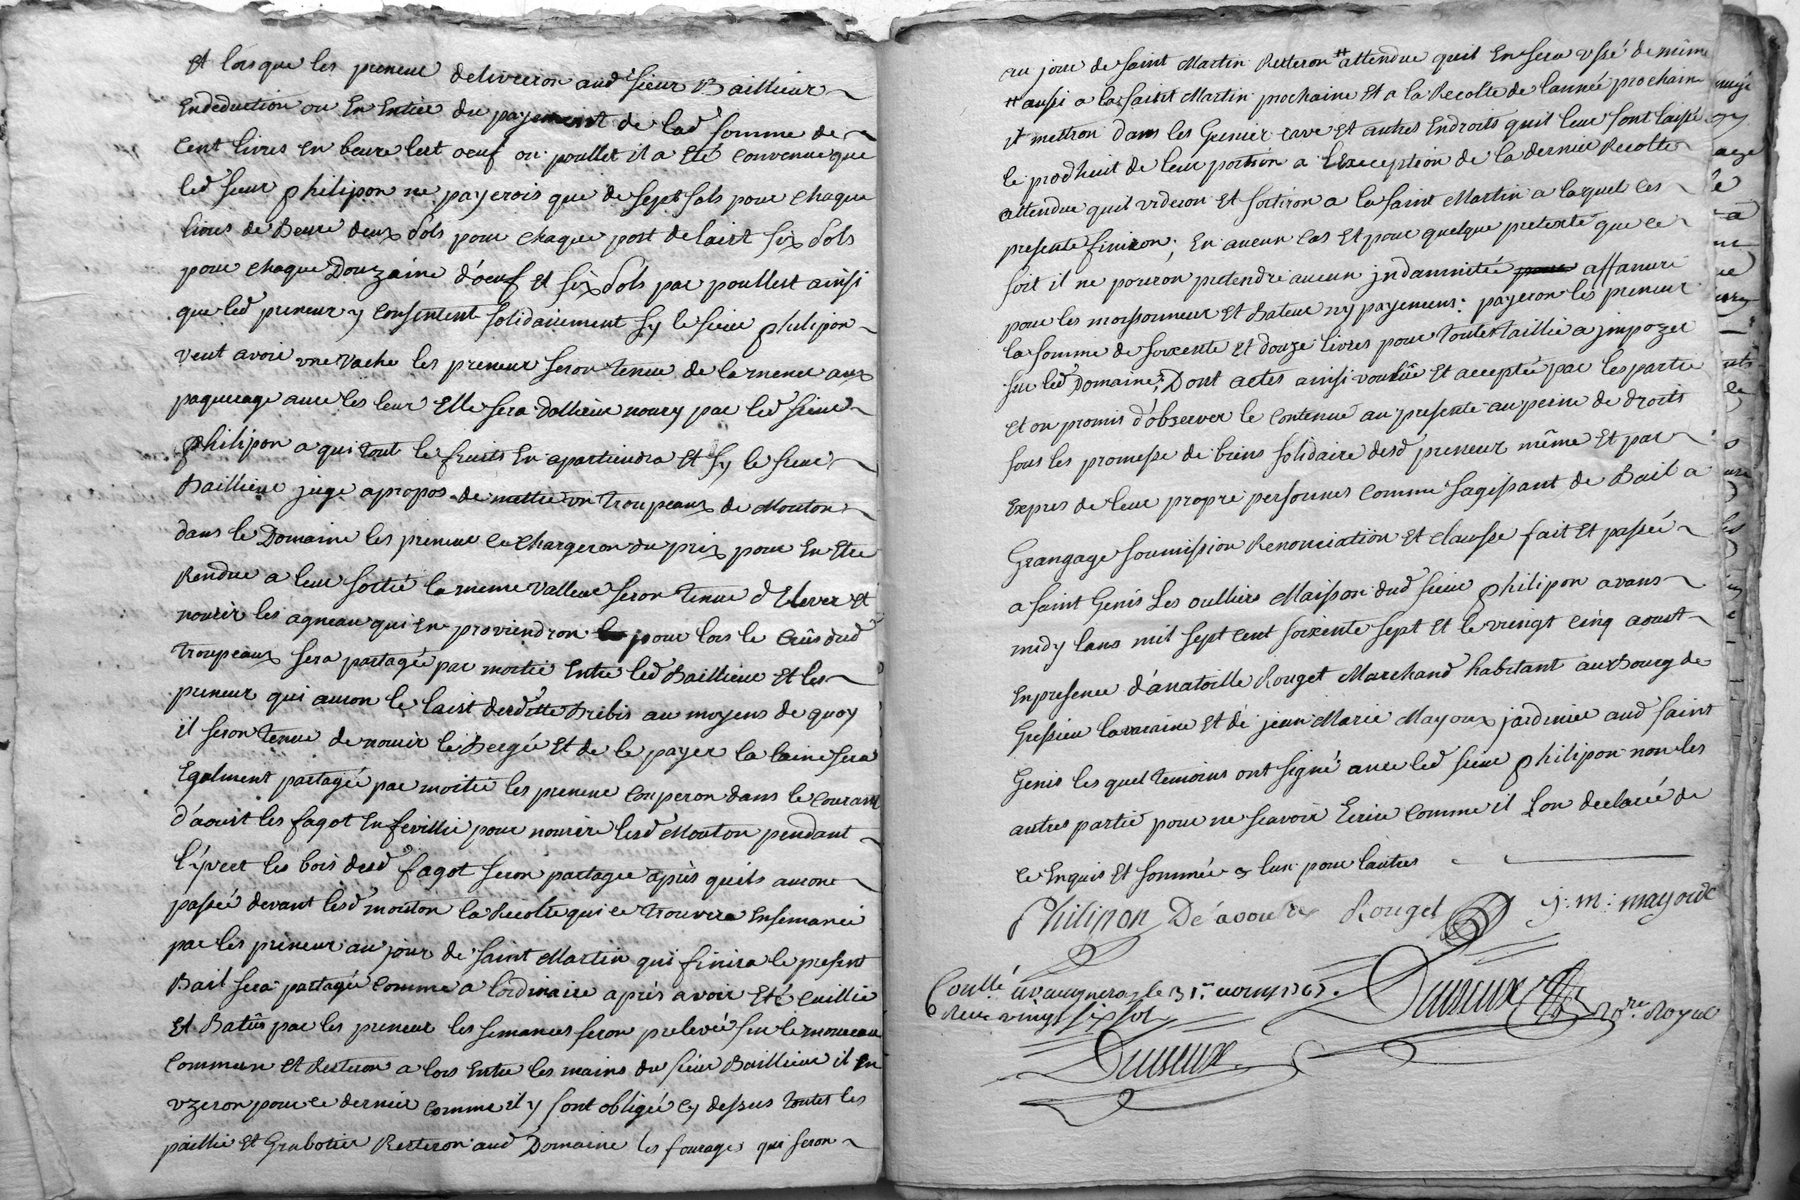 Et lorsque les preneur delivreron aud sieur Baillieur
Endeduction ou En Entier du payement de lad somme de
Cent livres En beure lest oeuf ou poullet il a Eté convenue que
led sieur philipon ne payerois que de sept sols pour chaque
livres de Beure deux sols pour chaque post de laist six sols
pour chaque Douzaine d'oeuf Et six sols par poullest ainsi
que led preneur y consentent solidairement sy le sieur philipon
veut avoir une vache les preneur seron tenue de la mener aux
paquerage avec les leur Elle sera dallieur noury par led sieur
philipon a qui tout le fruits En apartiendra Et sy le sieur
Baillieur juge apropos de mettre un troupeaux de Mouton
dans le Domaine les preneur ce chargeron du prix pour En Etre
Rendue a leur sortie la meme valleur seron tenue d'Elever Et
nourir les agneau qui En proviendron pour lors le crûs dud
troupeaux sera partagée par moitié Entre led Baillieur Et les
preneur qui auron le laist desditte Brebis au moyens de quoy
il seron tenue de nourir le Bergée Et de le payer la laine sera
Egalment partagée par moitié les preneur couperon dans le courant
d'aoust les fagot En feuillie pour nourir lesd Mouton pendant
l'yvert les bois desd fagot seron partagée après quils auront
passée devant lesd mouton la Recolte qui ce trouvera Ensemancé
par les preneur au jour de saint Martin qui finira le present
Bail sera partagée comme a lordinaire après avoir Eté cuillie
Et Batûs par les preneur les semances seron prelevée sur le monceau
commun Et Resteron a lors Entre les mains du sieur Baillieur il En
uzeron pour ce dernier comme il y sont obligée cy dessus toutes les
paillie Et Grabottier Resteron aud Domaine les fourages qui seron
au jour de saint Martin Resteron # attendue quil En sera ussé de même
# aussi a la saint Martin prochaine Et a la Recolte de lannée prochaine
il mettron dans les Grenier cave Et autres Endroits quil leur sont laissé
le prodhuit de leur portion a lException de la dernier Recolte
attendue quil videron Et sortiron a la saint Martin a laquel ces
presente finiron; En aucun cas Et pour quelque pretexte que ce
soit il ne pouron pretendre aucun jndamnitée affanure
pour les moissonneur Et Bateur ny payemens: payeron les preneur
la somme de soixente Et douze livres pour toutes taillie a jmpozer
sur led Domaine; Dont actes ainsi voulûe Et acceptée par les partie
Et on promis d'observer le contenue au presente au peine de droits
sous les promesse de biens solidaire desd preneur même Et par
Expres de leur propre personnes comme sagissant de Bail a
Grangage soumission Renonciation Et clausse fait Et passée
a saint Genis Les oulliers Maison dud sieur philipon avans
midy lans mil sept cent soixente sept Et le vingt cinq aoust
Enpresence d'anatoille Rouget Marchand habitant au Bourg de
Gressieu lavaraine Et de jean Marie Mayoux jardinier aud saint
Genis les quel temoins ont signé avec led sieur philipon non les
autres partie pour ne scavoir Ecrire comme il lon declarée de
ce Enquis Et sommée & lun pour lautres
Philipon De avoulx Rouget j: m: mayoux
Conllé a vaugneray le 31e aoust 1767.
Reçu vingt six sols
Dussieux Nore Royal
Dussieux